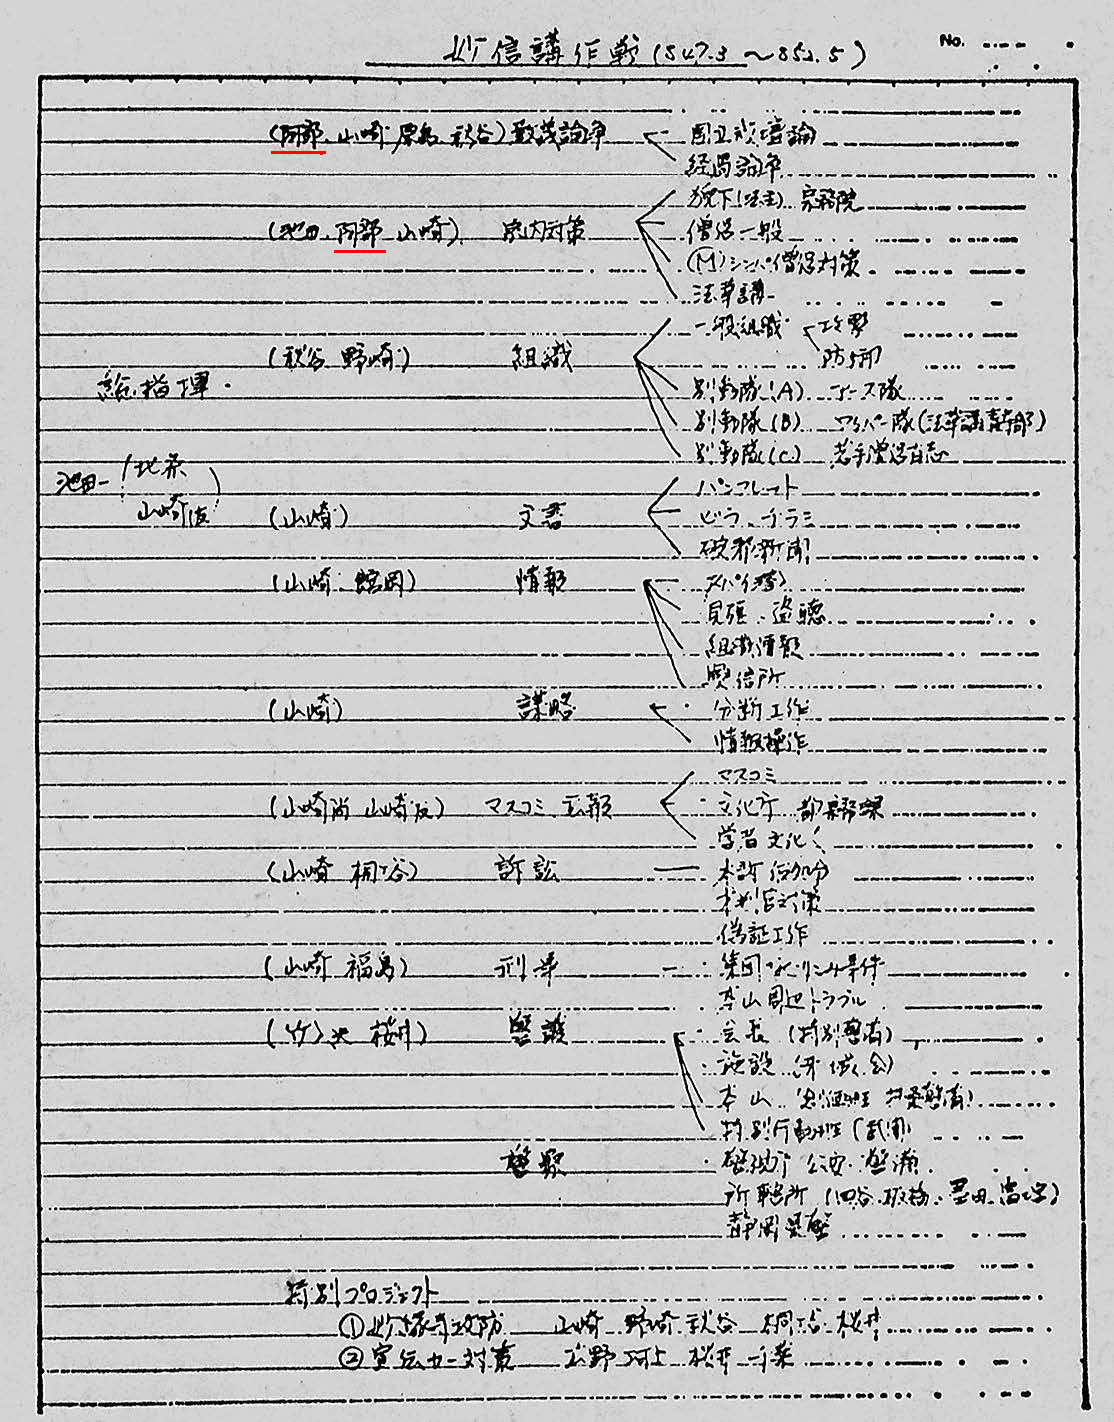 妙信講作戦(S47.3～S52.5)
No.
(阿部、山崎、原島、秋谷)教義論争
国立戒壇論
経過論争
(池田、阿部、山崎) 宗内対策
猊下(法主)、宗務院
僧侶一般
(M)シンパ僧侶対策
法華講
(秋谷 野崎) 組織
一般組織 攻撃
防衛
総指揮
別動隊(A)
別動隊(B) (法華講 幹部)
別動隊(C) 若手僧侶有志
池田―(北条
山崎
(山崎) 文書
パンフレット
ビラ、チラシ
破邪新聞
(山崎、館岡) 情報
スパイ
見張、盗聴
組織情報
興信所
(山崎) 謀略
分断工作
情報操作
(山崎尚 山崎 ) マスコミ 広報
マスコミ
文化庁 都
学者文化人
(山崎 桐ヶ谷) 訴訟
本訴 仮処分
裁判官対策
偽証工作
(山崎 福島) 刑事
集団 事件
本山周辺トラブル
(竹沢 桜井) 警護
会長 (特別警備)
施設
本山
特別行動班
警察
警視庁 公安、警備
所轄所 (四谷、板橋、
静岡県警
特別プロジェクト
①妙縁寺攻防 山崎 野崎 秋谷 桐谷 桜井
②宣伝カー対策 桜井 千葉